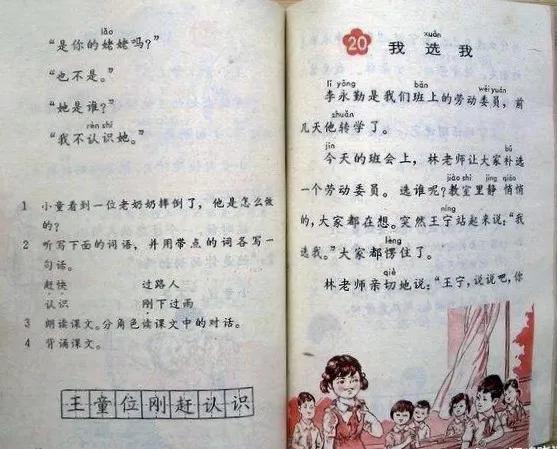 lǎo
“是你的姥姥吗？”
“也不是。”
“她是谁？”
rèn shí
“我不认识她。”
1 小童看到一位老奶奶摔倒了，他是怎么做
的？
2 听写下面的词语，并用带点的词各写一
句话。
赶快 过路人
认识 刚下过雨
3 朗读课文。分角色读课文中的对话。
4 背诵课文。
王童位刚赶认识
xuǎn
20 我选我
lǐ yǒng bān wěi yuán
李永勤是我们班上的劳动委员，前
zhuǎn
几天他转学了。
jīn bǔ
今天的班会上，林老师让大家补选
jiào shì jìng qiāo
一个劳动委员。选谁呢？教室里静悄悄
的，大家都在想。突然王宁站起来说：“我
lèng
选我。”大家都愣住了。
qiè
林老师亲切地说：“王宁，说说吧，你